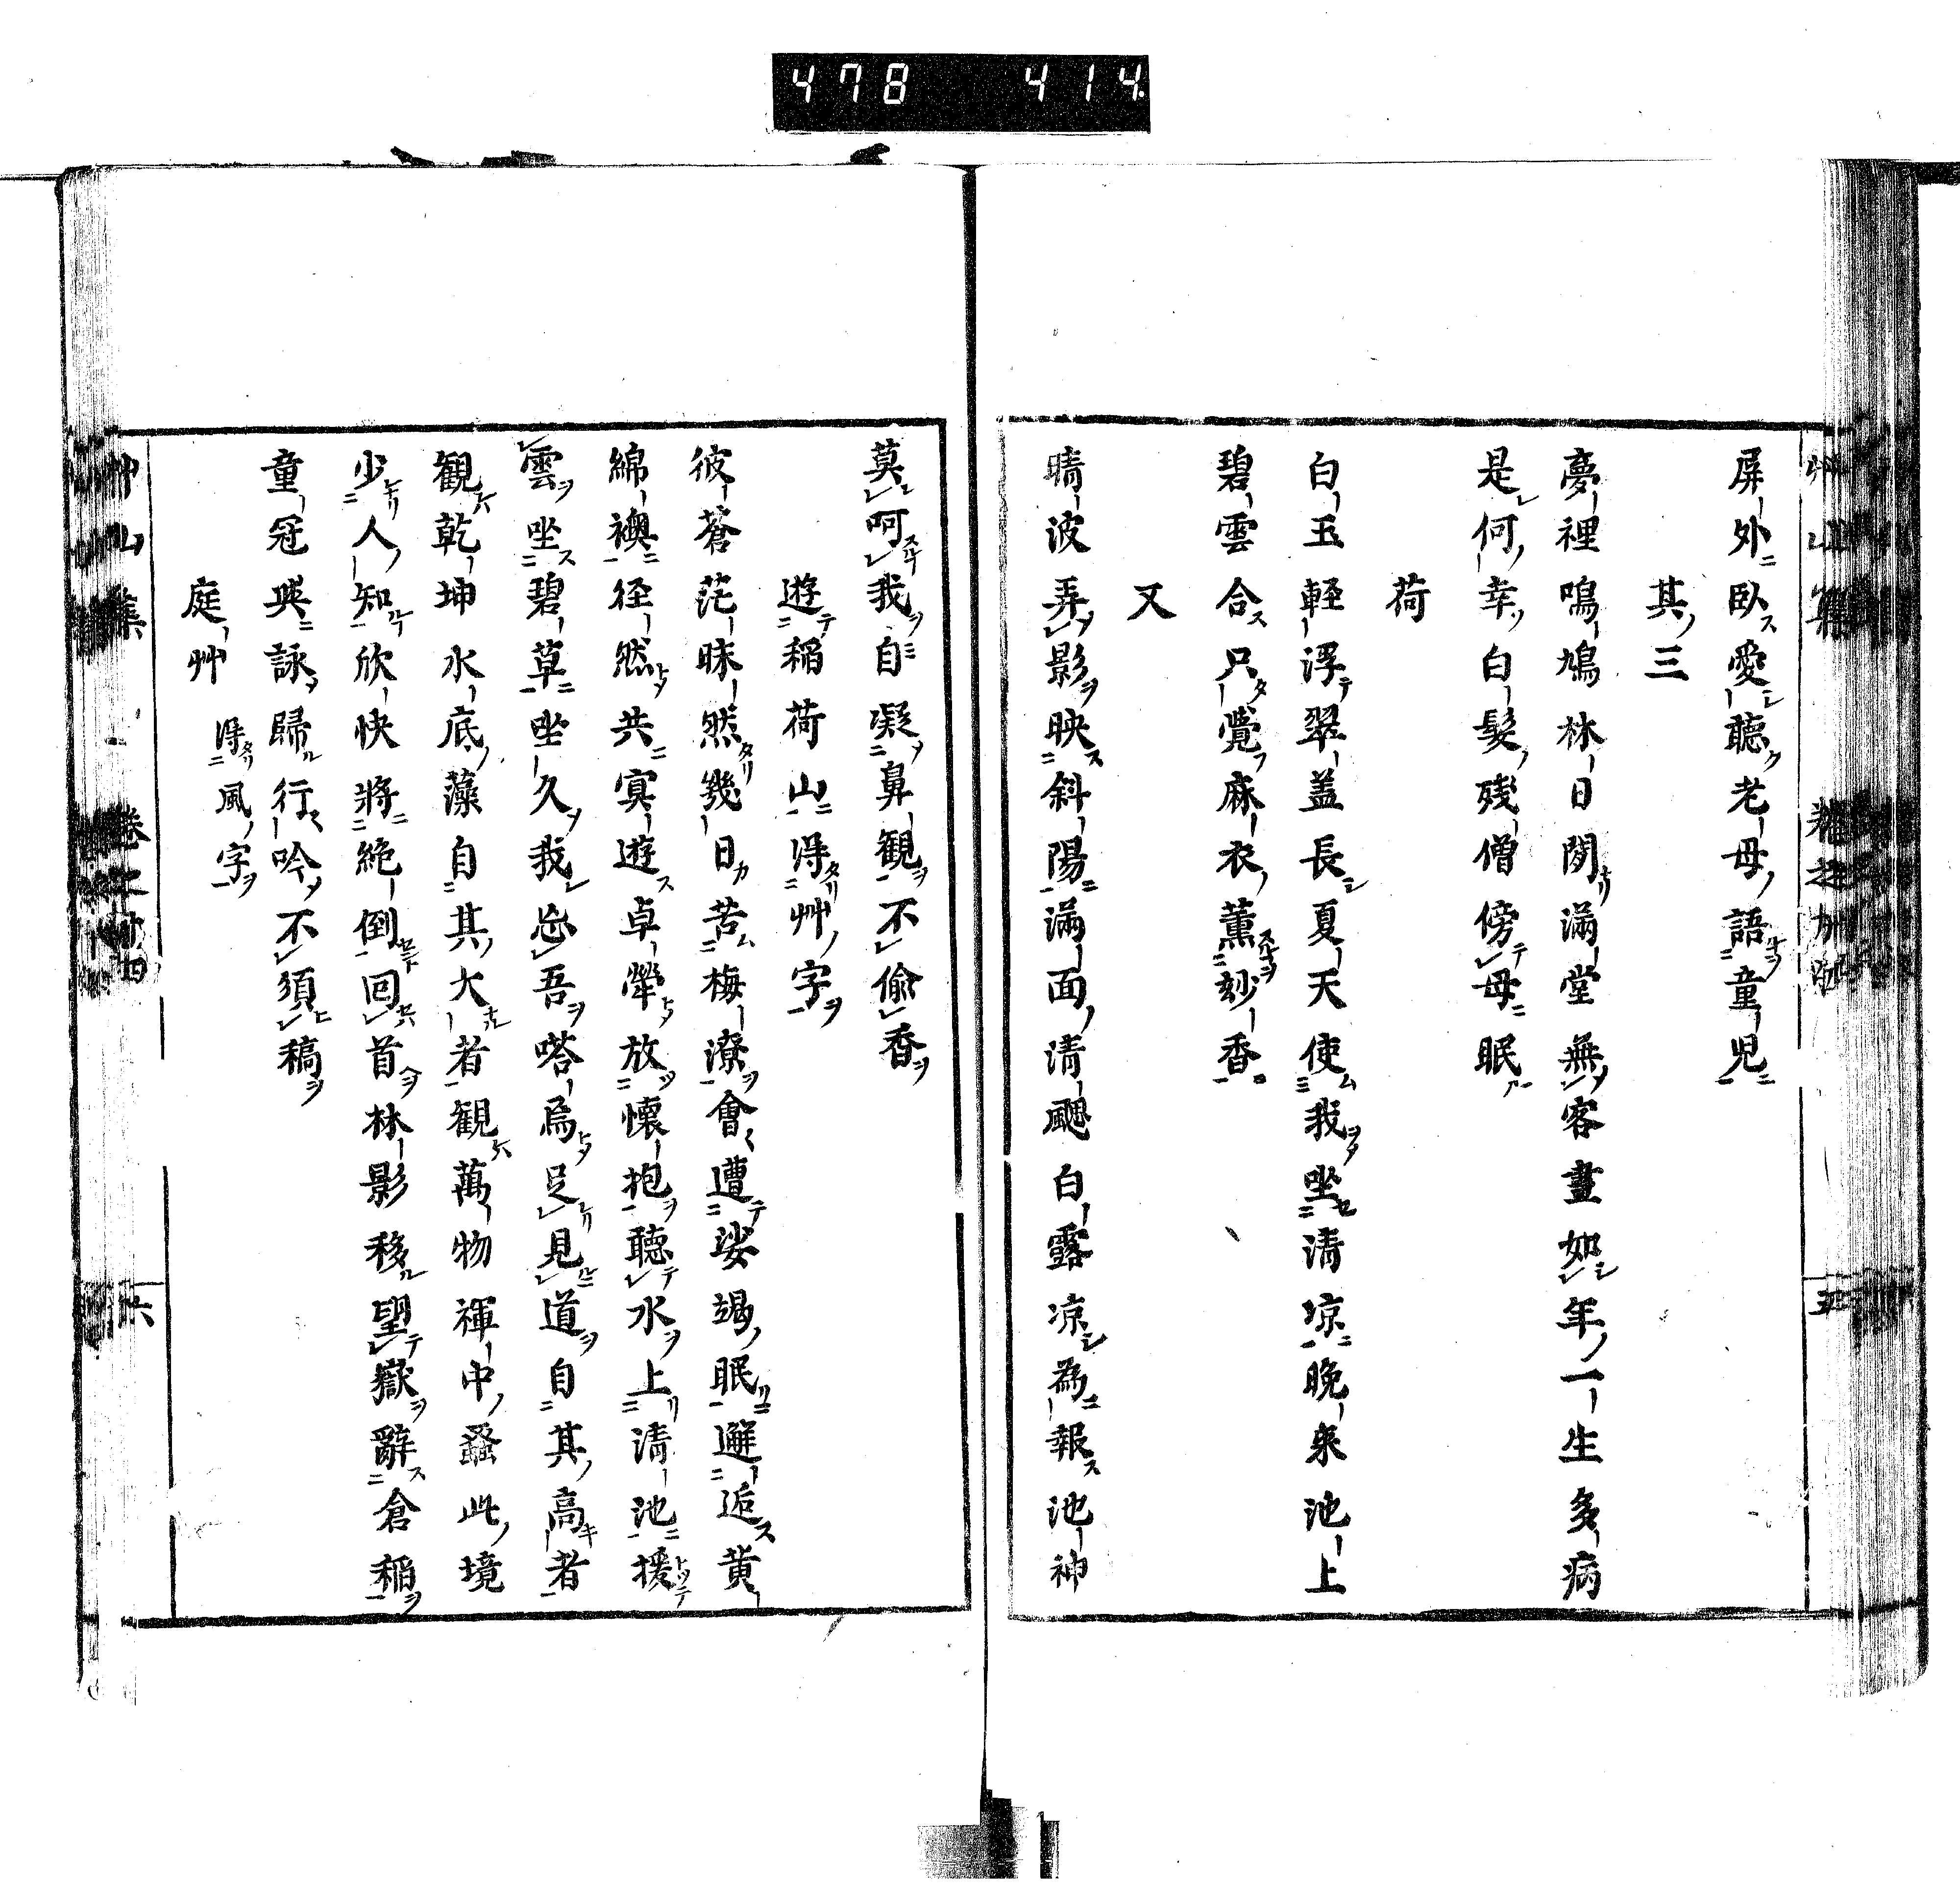 478 414
屏外臥愛聽老母語童兒
其三
夢裡鳴鳩林日閑滿堂無客晝如年一生多病
是何幸白髮殘僧傍母眠
荷
白玉輕浮翠盖長夏天使我坐清凉晚來池上
碧雲合只覺麻衣薰妙香
又
晴波弄影映斜陽滿面清颸白露凉為報池神
莫呵我自凝鼻觀不偷香
遊稲荷山得艸字
彼蒼茫昧然幾日苦梅潦會遭娑竭眠邂逅黄
綿襖径然共寞遊卓犖放懷抱聽水上清池援
雲坐碧草坐久我忘吾嗒焉足見道自其高者
観乾坤水底藻自其大者観萬物褌中蝨此境
少人知欣快將絶倒回首林影移望嶽辭倉稲
童冠與詠歸行吟不須稿
庭艸 得風字
艸山集 卷二十四 六